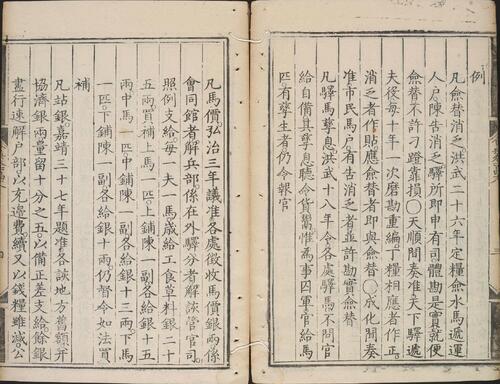 例
凡僉替消乏洪武二十六年定糧僉水馬遞運
人戶陳告消乏驛所即申有司體勘是實就便
僉替不許刁蹬靠損○天順間奏准天下驛遞
夫役每十年一次磨勘重編丁糧相應者作正
消乏者作貼應僉替者即與僉替○成化間奏
准市民馬戶有告消乏者並許勘實僉替
凡驛馬孳息洪武十八年令各處驛馬不問官
給自備其孳息聽令貨鬻惟為事囚軍官給馬
匹有孳生者仍令報官
凡馬價弘治三年議准各處徵收馬價銀兩係
會同館者解兵部係在外驛分者該管官司
照例支給每一夫一馬歲給工食草料銀二十
五兩買補上馬一匹上鋪陳一副各給銀十五
兩中馬一匹中鋪陳一副各給銀十三兩下馬
一匹下鋪陳一副各給銀十兩仍督令如法買
補
凡站銀嘉靖三十七年題准各該地方舊額并
協濟銀兩量留十分之五以備正差支給餘銀
盡行速解戶部以充邊費續又以錢糧雖減公